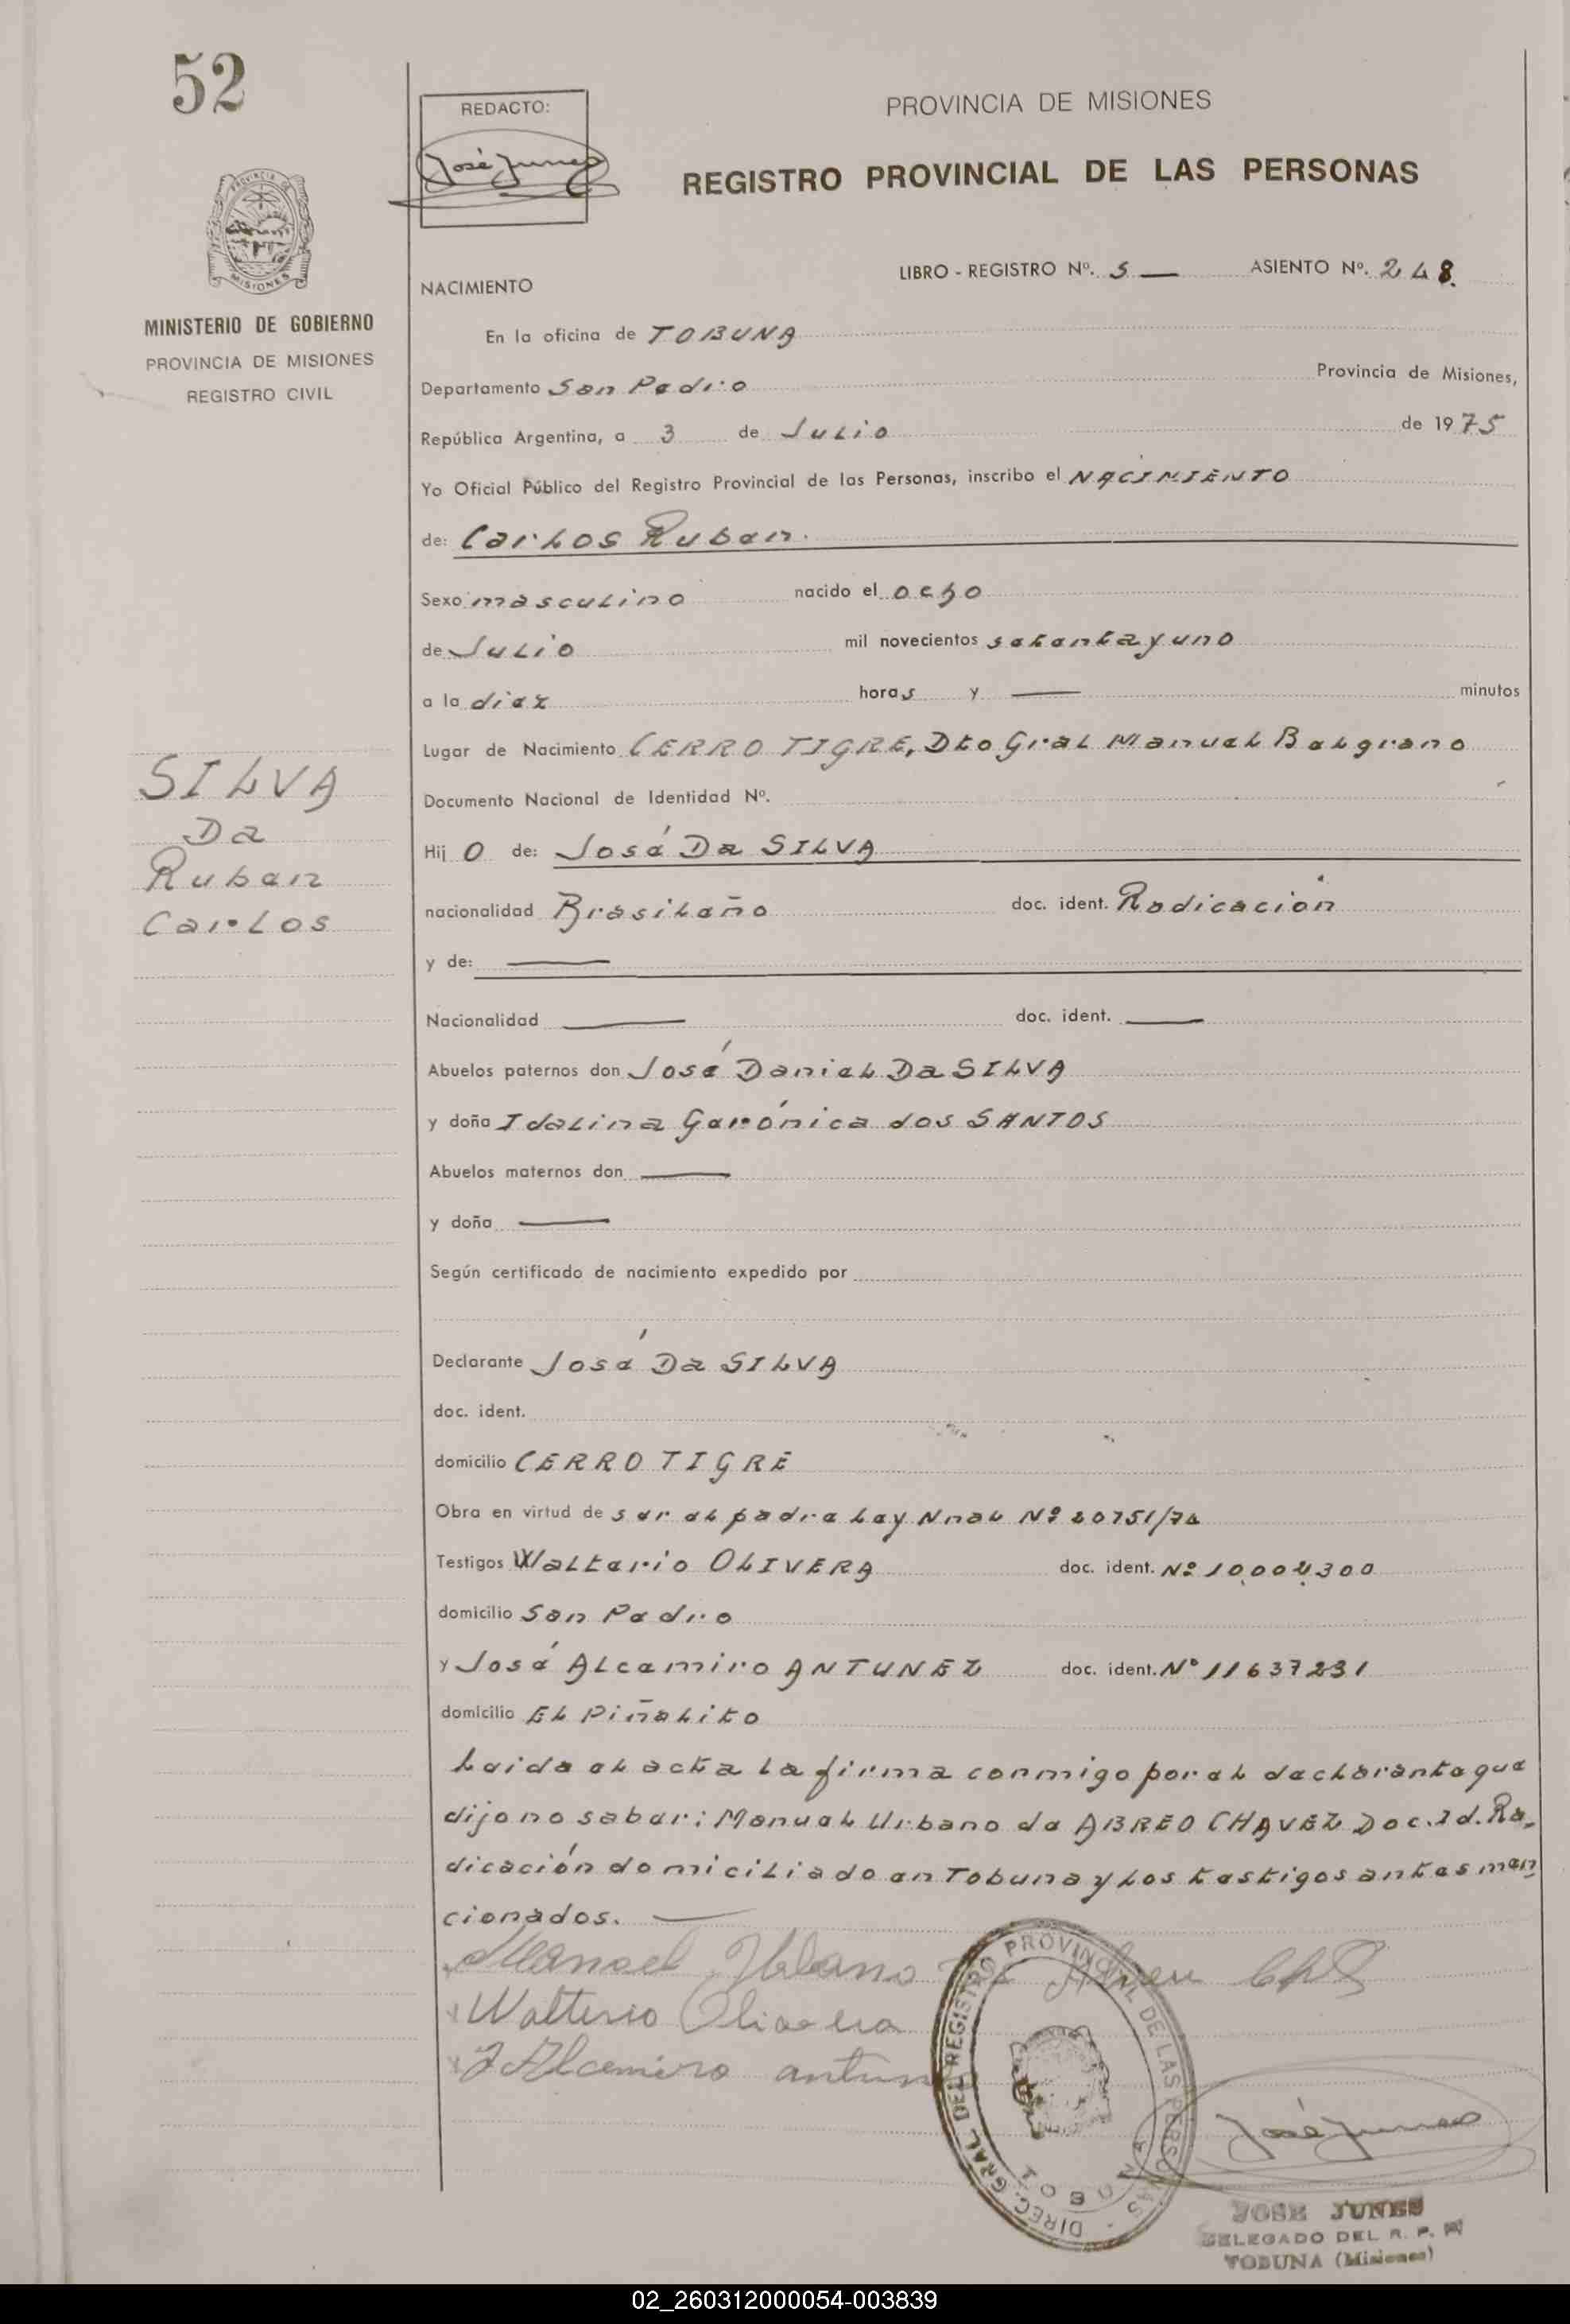 52
REDACTO:
José Junes
PROVINCIA DE MISIONES
REGISTRO PROVINCIAL DE LAS PERSONAS
PROVINCIA DE
MISIONES
MINISTERIO DE GOBIERNO
PROVINCIA DE MISIONES
REGISTRO CIVIL
LIBRO - REGISTRO Nº. 5 — ASIENTO Nº. 248.
NACIMIENTO
En la oficina de TOBUNA
Departamento San Pedro Provincia de Misiones,
República Argentina, a 3 de Julio de 1975
Yo Oficial Público del Registro Provincial de las Personas, inscribo el NACIMIENTO
de: Carlos Ruben.
Sexo masculino nacido el ocho
de Julio mil novecientos setenta y uno
a la diez horas y — minutos
Lugar de Nacimiento CERRO TIGRE, Dto Gral Manuel Belgrano
Documento Nacional de Identidad Nº.
SILVA
Da
Ruben
Carlos
Hij o de: José Da SILVA
nacionalidad Brasileño doc. ident. Radicación
y de: —
Nacionalidad — doc. ident. —
Abuelos paternos don José Daniel Da SILVA
y doña Idalina Gerónica dos SANTOS
Abuelos maternos don —
y doña —
Según certificado de nacimiento expedido por
Declarante José Da SILVA
doc. ident.
domicilio CERRO TIGRE
Obra en virtud de ser el padre Ley Nnal Nº 20751/74
Testigos Walterio OLIVERA doc. ident. Nº 10.004.300
domicilio San Pedro
y José Alcamiro ANTUNEZ doc. ident. Nº 11637231
domicilio El Piñalito
Leida el acta la firma conmigo por el declarante que
dijo no saber: Manuel Urbano de ABREO CHAVEZ Doc. Id. Ra-
dicación domiciliado en Tobuna y los testigos antes men
cionados. —
Manoel Urbano De Abreu
Walterio Olivera
J Alcemiro antun
DIREC. GRAL. DEL REGISTRO PROVINCIAL DE LAS PERSONAS
José Junes
JOSE JUNES
DELEGADO DEL R. P. P.
TOBUNA (Misiones)
02_260312000054-003839